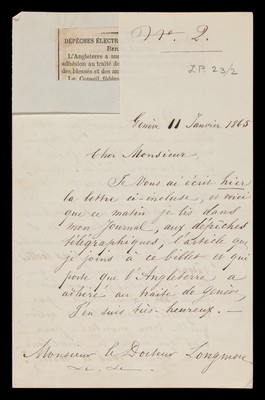 DÉPÊCHES ÉLECTR
L'Angleterre a
adhésion au traité de
des blessés et des
Le Conseil
No. 2.
Genève 11 Janvier 1865
Cher Monsieur,
Je Vous ai écrit hier
la lettre ci-incluse, et voici
que ce matin je lis dans
mon Journal, aux dépêches
télégraphiques, l'article que
je joins à ce billet et qui
porte que l'Angleterre a
adhéré au traité de Genève,
J'en suis très-heureux. —
Monsieur le Docteur Longmore